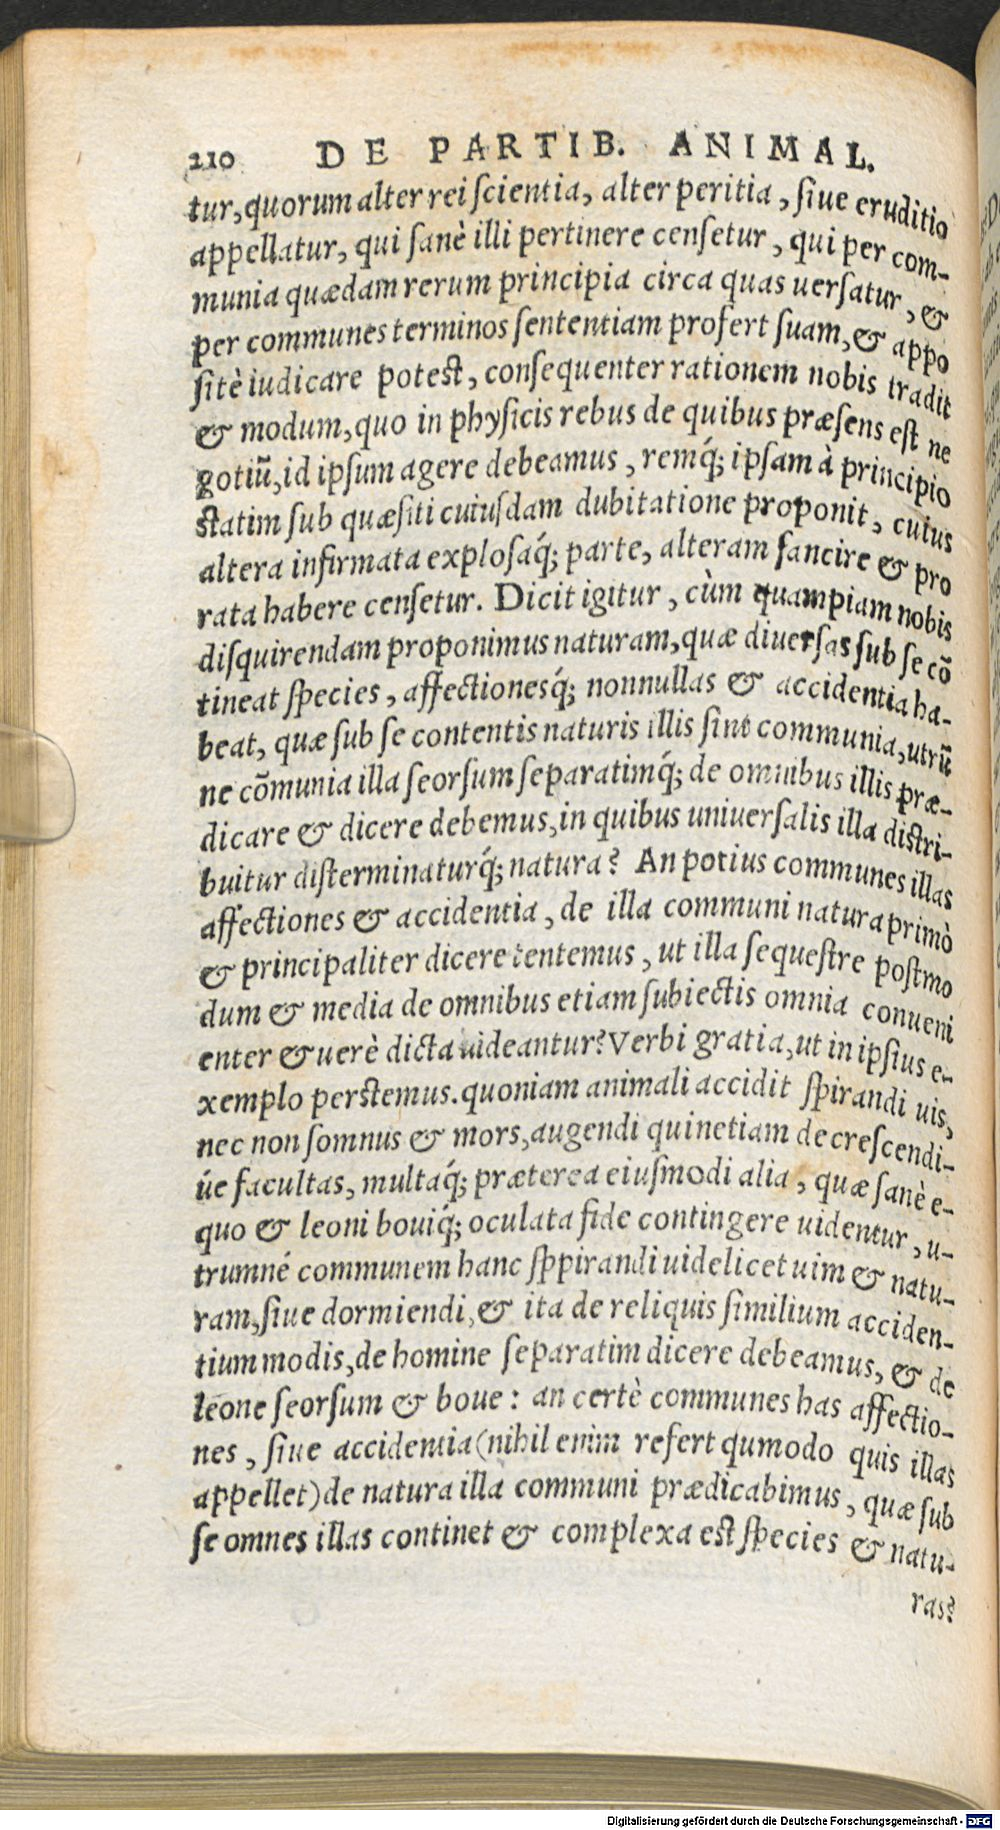 210 DE PARTIB. ANIMAL.
tur, quorum alter rei ſcientia, alter peritia, ſiue eruditio
appellatur, qui ſanè illi pertinere cenſetur, qui per com-
munia quædam rerum principia circa quas uerſatur, &
per communes terminos ſententiam profert ſuam, & appo
ſitè iudicare poteſt, conſequenter rationem nobis tradit
& modum, quo in phyſicis rebus de quibus præſens eſt ne
gotiũ, id ipſum agere debeamus, remq́; ipſam à principio
ſtatim ſub quæſiti cuiuſdam dubitatione proponit, cuius
altera infirmata exploſaq́; parte, alteram ſancire & pro
rata habere cenſetur. Dicit igitur, cùm quampiam nobis
diſquirendam proponimus naturam, quæ diuerſas ſub ſe cõ
tineat ſpecies, affectionesq́; nonnullas & accidentia ha-
beat, quæ ſub ſe contentis naturis illis ſint communia, utrũ
ne cõmunia illa ſeorſum ſeparatimq́; de omnibus illis præ-
dicare & dicere debemus, in quibus uniuerſalis illa diſtri-
buitur diſterminaturq́; natura? An potius communes illas
affectiones & accidentia, de illa communi natura primò
& principaliter dicere tentemus, ut illa ſequeſtre poſtmo
dum & media de omnibus etiam ſubiectis omnia conueni
enter & uerè dicta uideantur? Verbi gratia, ut in ipſius e-
xemplo perſtemus. quoniam animali accidit ſpirandi uis,
nec non ſomnus & mors, augendi quinetiam decreſcendi-
úe facultas, multaq́; præterea eiuſmodi alia, quæ ſanè e-
quo & leoni bouiq́; oculata fide contingere uidentur, u-
trumné communem hanc ſppirandi uidelicet uim & natu-
ram, ſiue dormiendi, & ita de reliquis ſimilium acciden-
tium modis, de homine ſeparatim dicere debeamus, & de
leone ſeorſum & boue: an certè communes has affectio-
nes, ſiue accidentia (nihil enim refert qumodo quis illas
appellet) de natura illa communi prædicabimus, quæ ſub
ſe omnes illas continet & complexa eſt ſpecies & natu-
ras?
Digitalisierung gefördert durch die Deutsche Forschungsgemeinschaft - DFG